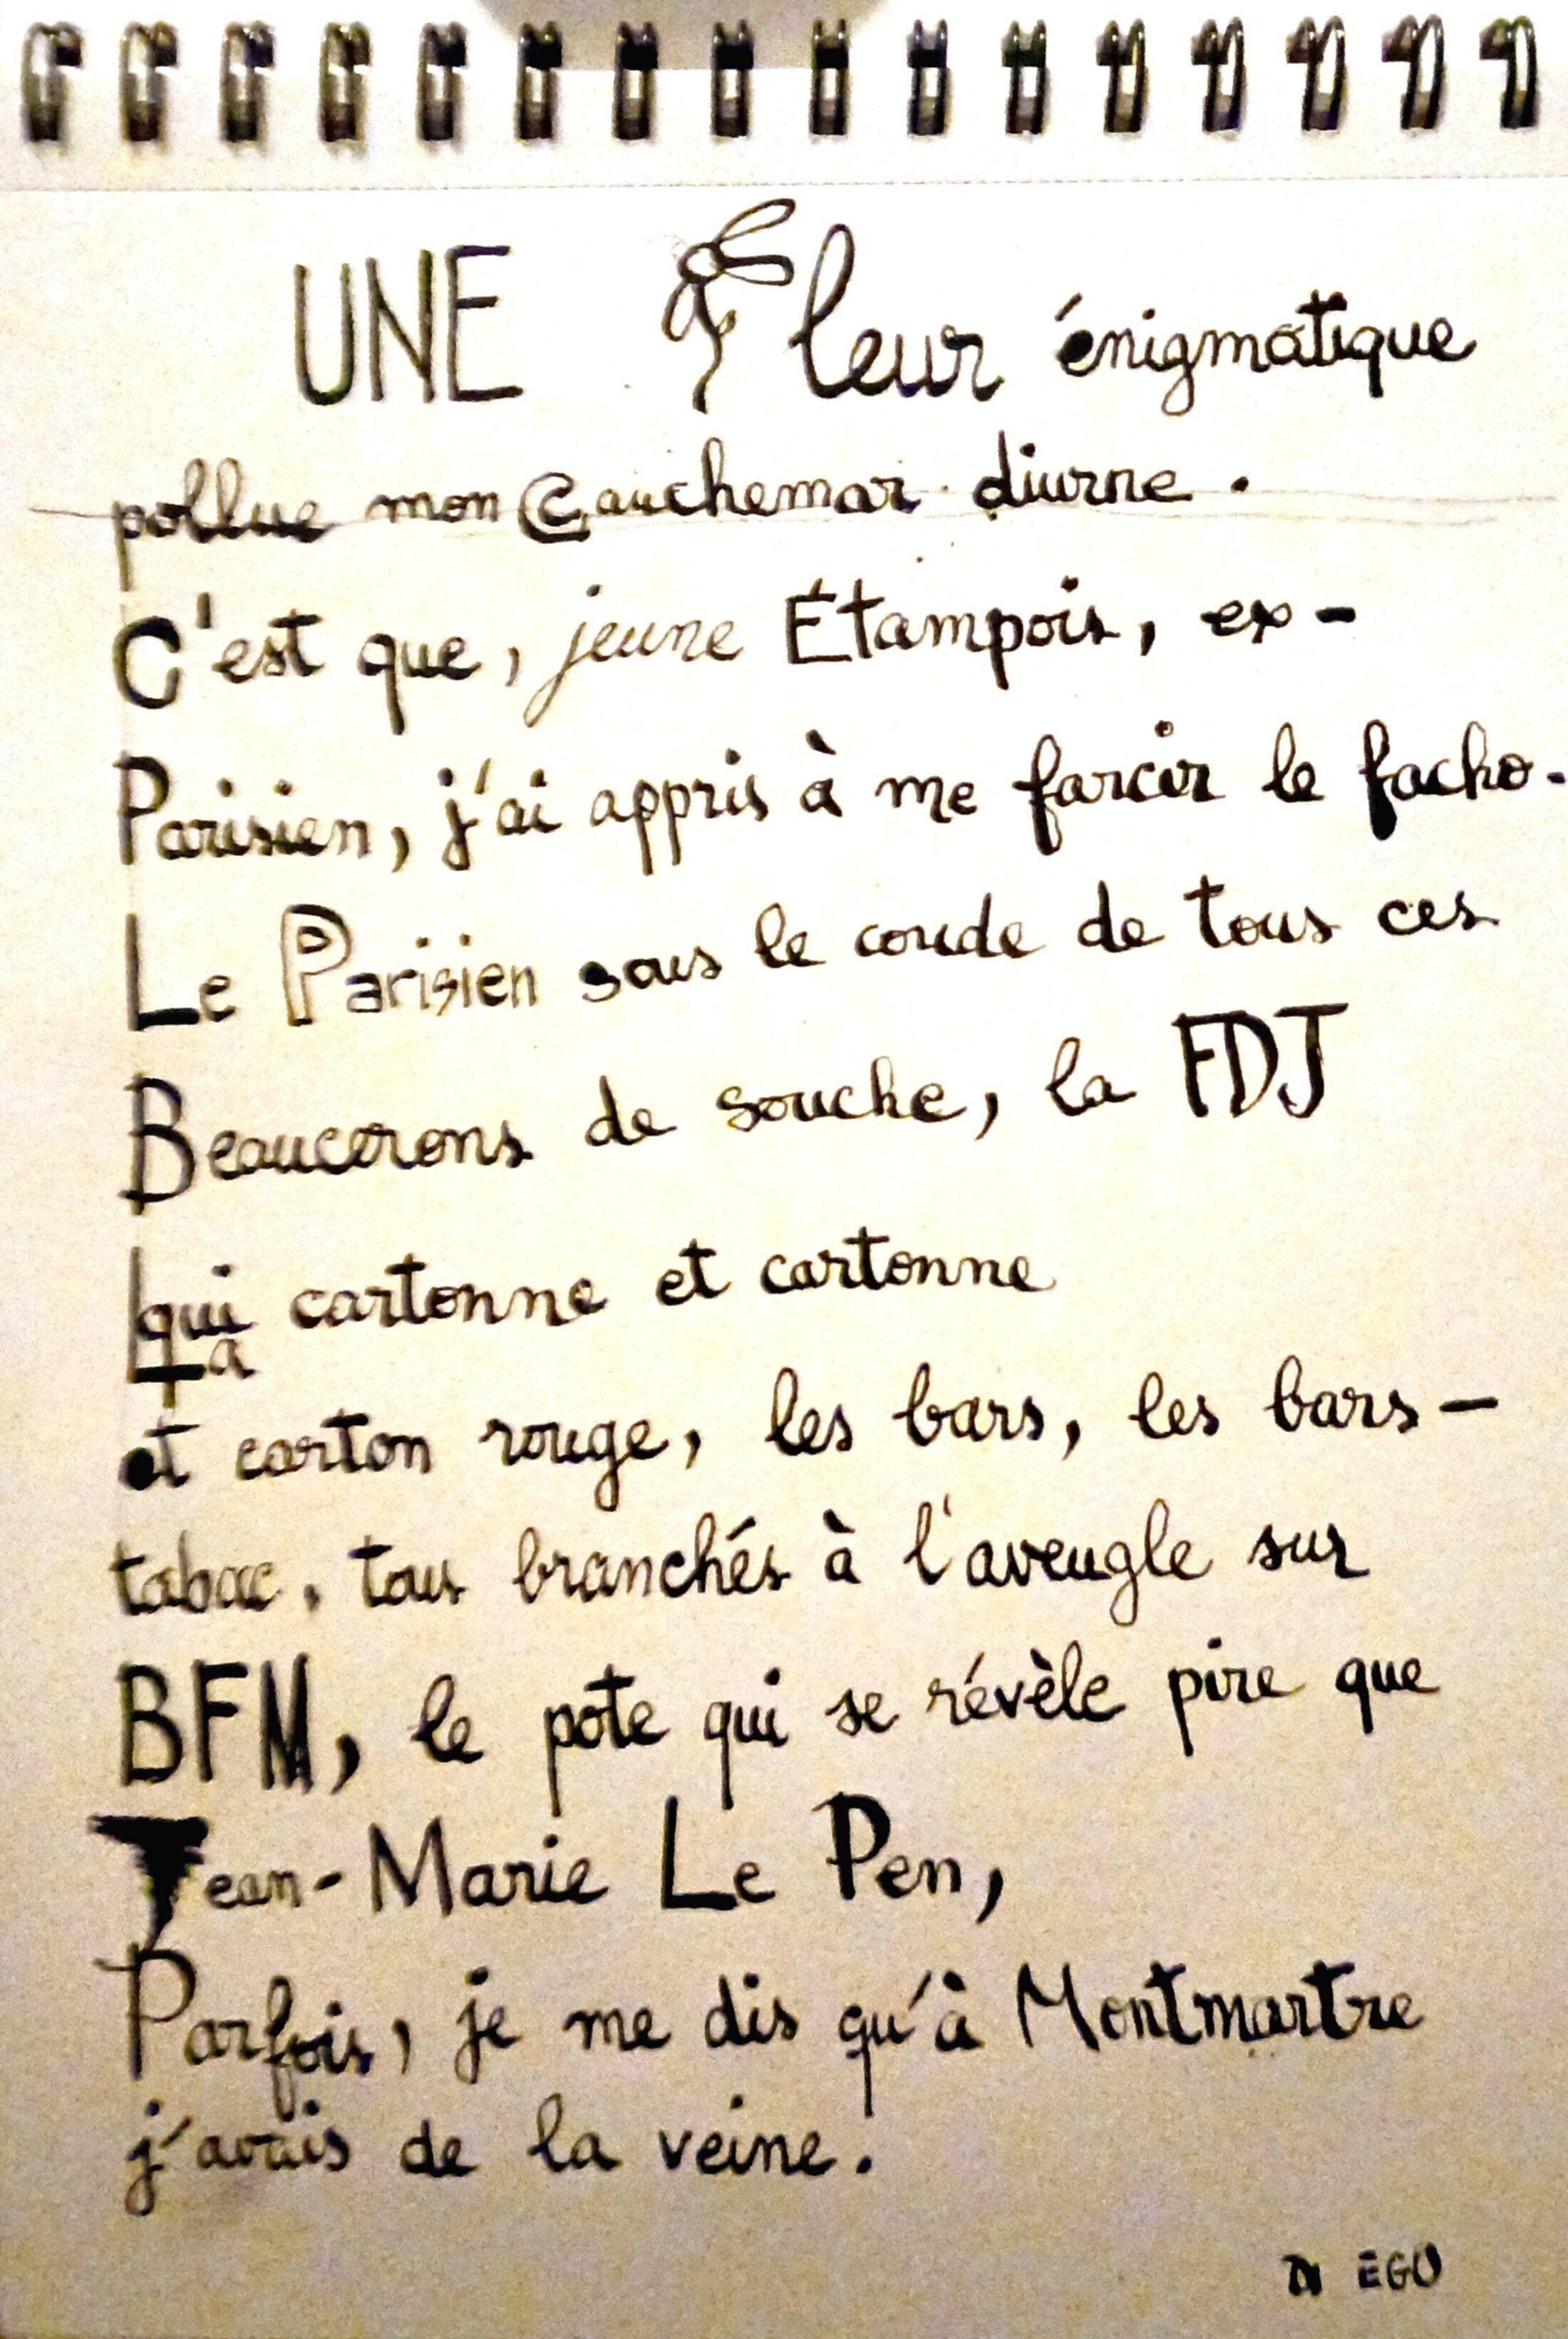 UNE Fleur énigmatique
pollue mon Cauchemar diurne.
C'est que, jeune Étampois, ex-
Parisien, j'ai appris à me farcir le facho-
Le Parisien sous le coude de tous ces
Beaucerons de souche, la FDJ
qui cartonne et cartonne
La
et carton rouge, les bars, les bars-
tabac, tous branchés à l'aveugle sur
BFM, le pote qui se révèle pire que
Jean-Marie Le Pen,
Parfois, je me dis qu'à Montmartre
j'avais de la veine.
EGO